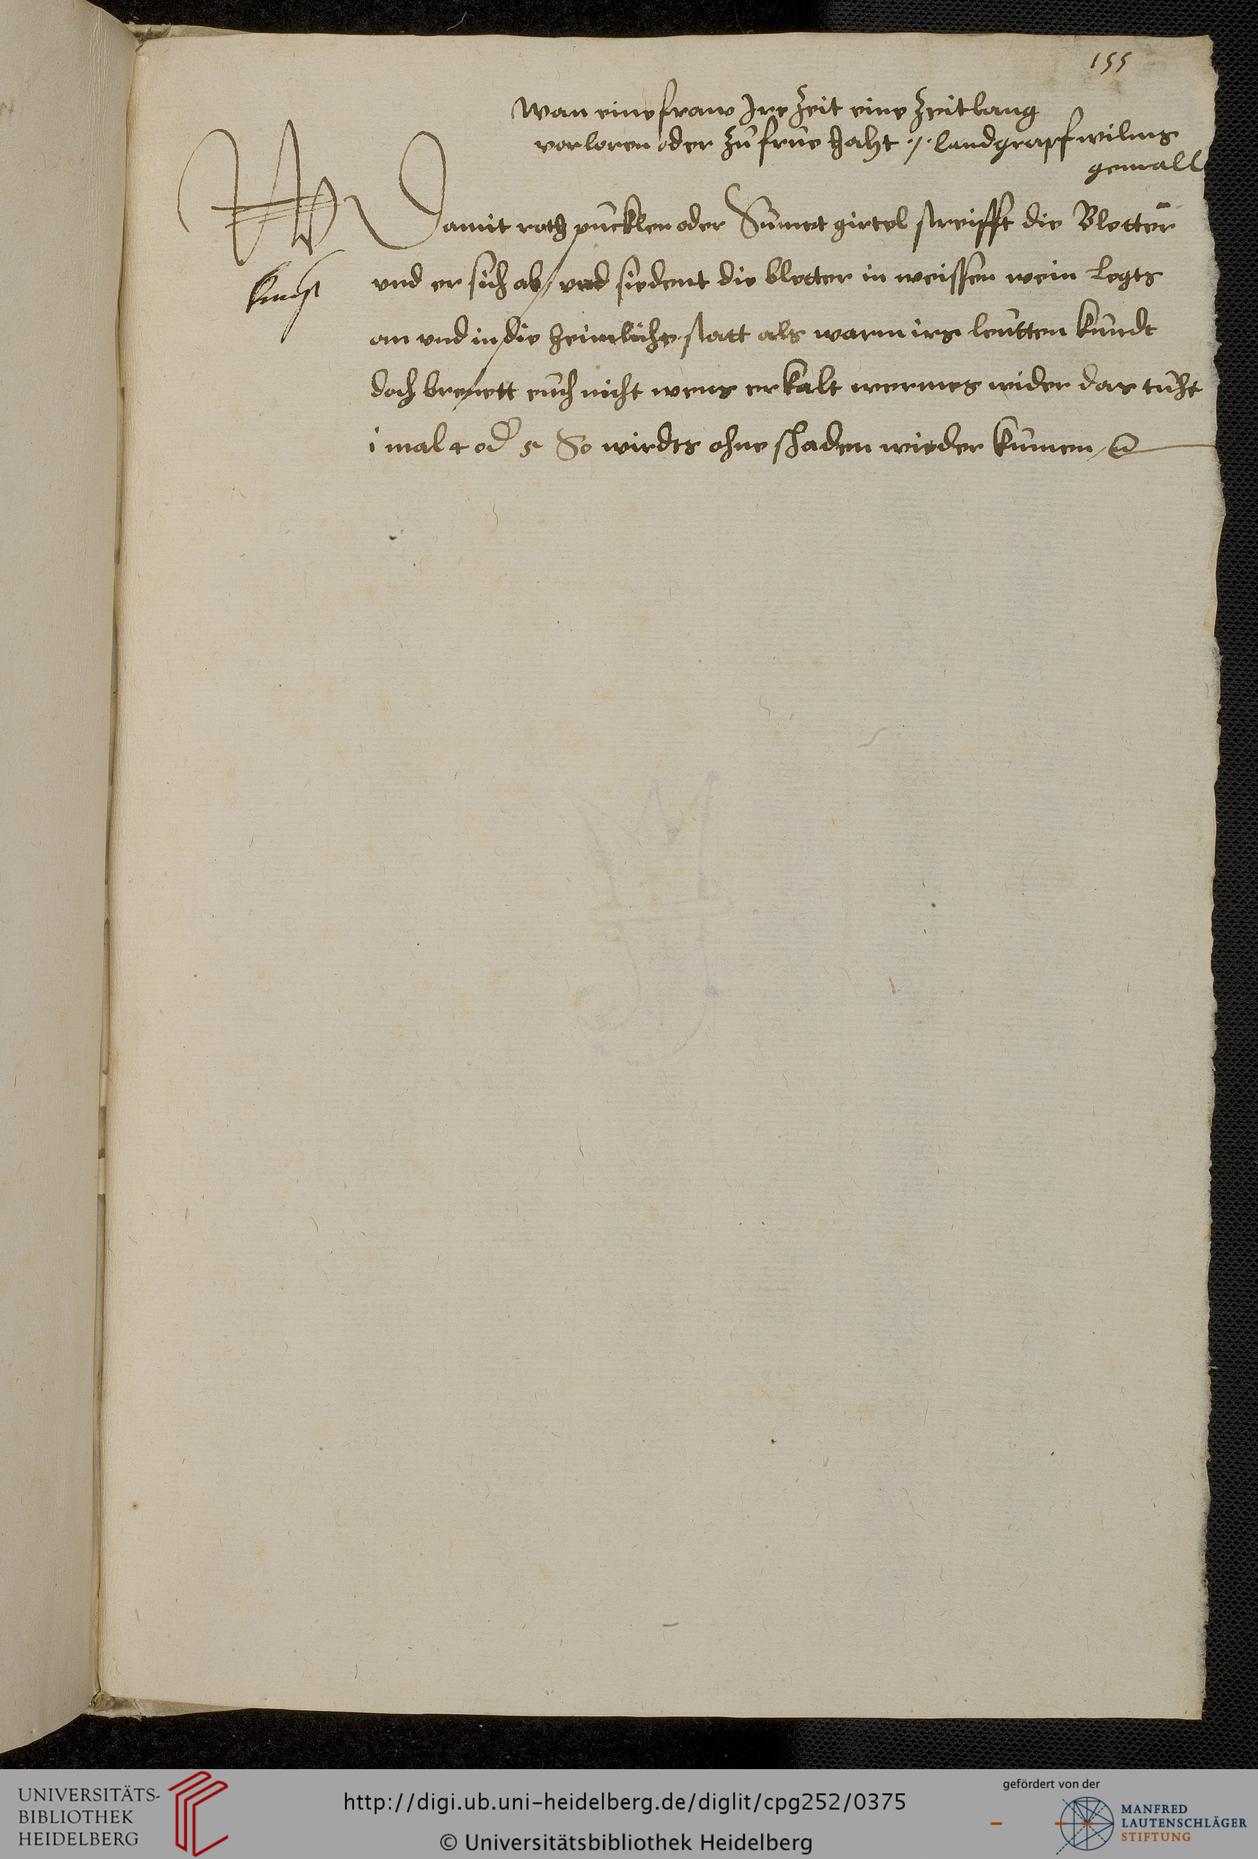 155
Wan eine fraw Ire Zeit eine Zeitlang
verloren oder Zu frue haht /. landgraff wilms
gemall
W Damit roth puecklen oder Sunnet girtel streifft die Bletter
kunst
vnd er sich ab vnd siedent die bletter in weissen wein legts
an vnd in die heimliche statt als warm irs leutten kundt
doch brenett euch nicht wens erkalt wermes wider das tuht
i mal 4 od 5 So wirdts ohne schaden wieder kumen
UNIVERSITÄTS-
BIBLIOTHEK
HEIDELBERG
http://digi.ub.uni-heidelberg.de/diglit/cpg252/0375
© Universitätsbibliothek Heidelberg
gefördert von der
MANFRED
LAUTENSCHLÄGER
STIFTUNG